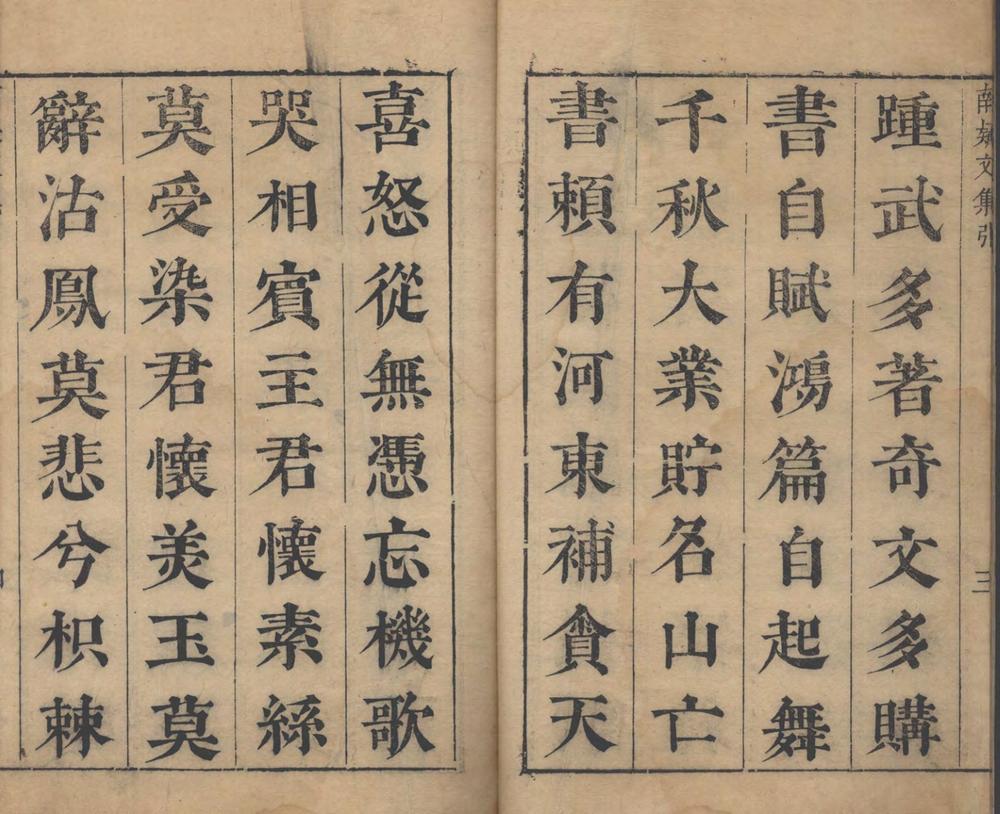 南⿰女⿱文集引
三
踵武多著奇文多購
書自賦鴻篇自起舞
千秋大業貯名山亡
書頼有河東補貪天
喜怒從無憑忘機歌
哭相賓主君懷素絲
莫受染君懷美玉莫
辭沽鳳莫悲兮枳棘